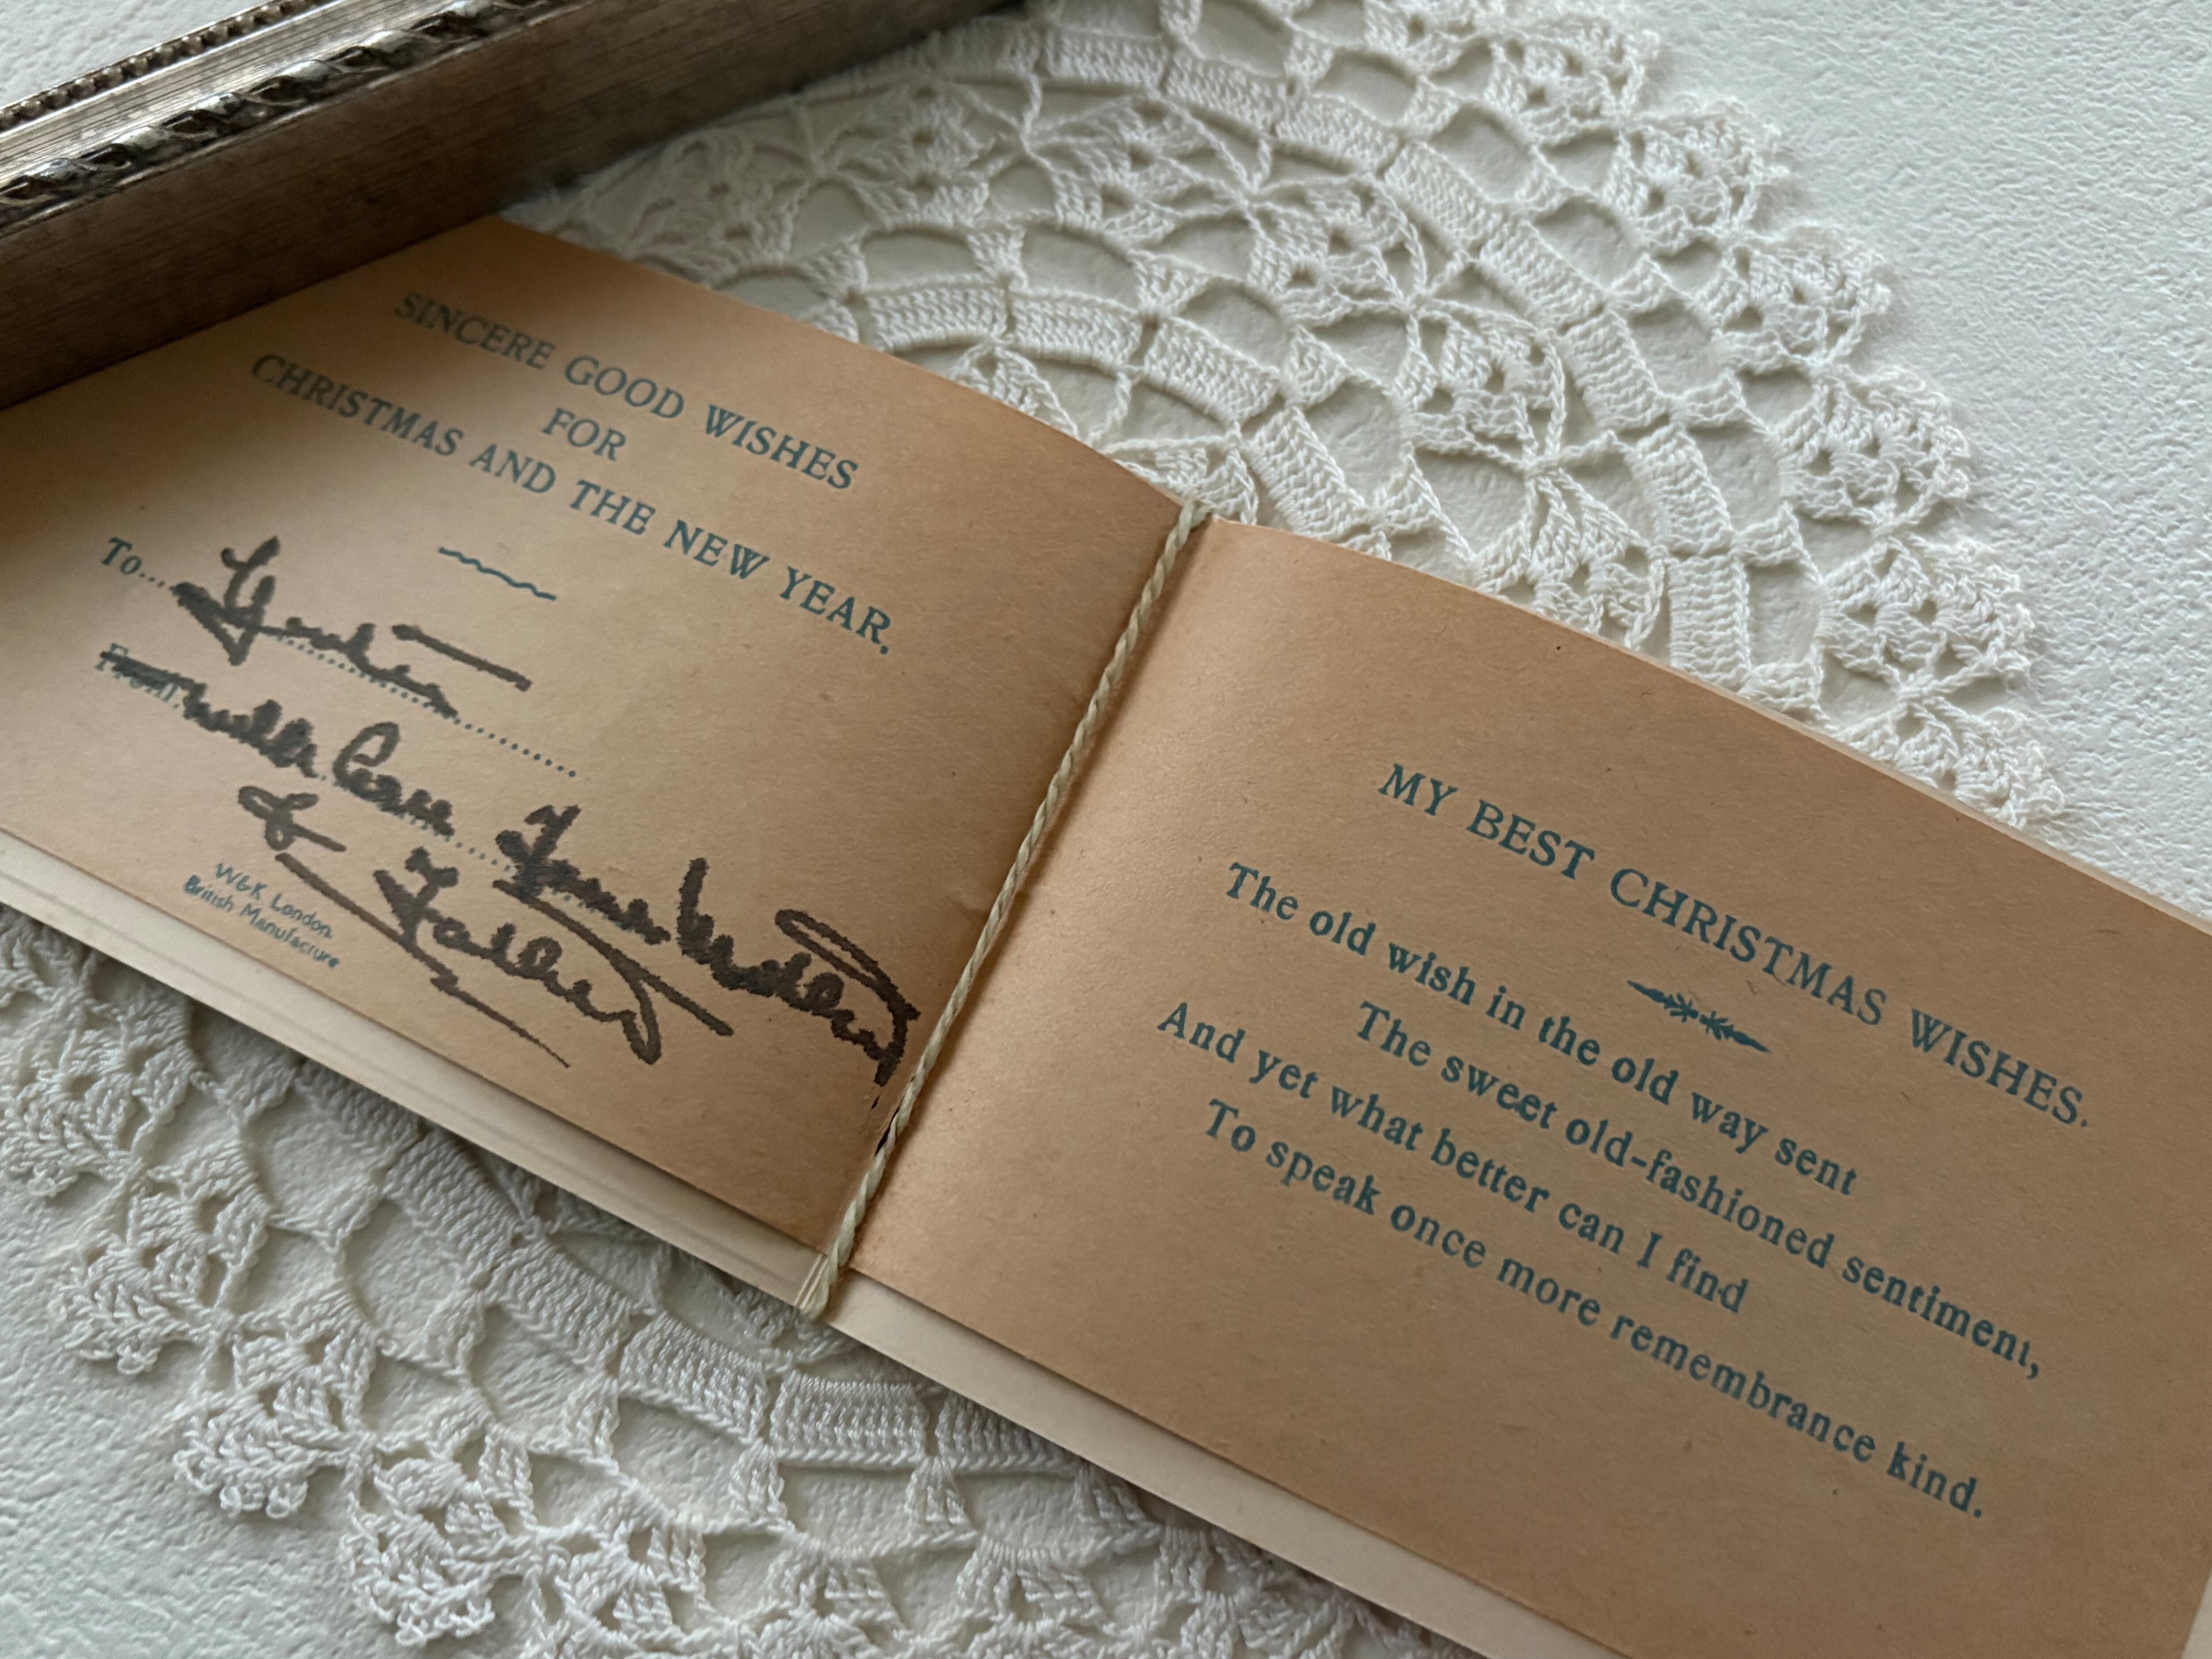 SINCERE GOOD WISHES
FOR
CHRISTMAS AND THE NEW YEAR.
To
From
& Father
W&K London
British Manufacture
MY BEST CHRISTMAS WISHES.
The old wish in the old way sent
The sweet old-fashioned sentiment,
And yet what better can I find
To speak once more remembrance kind.